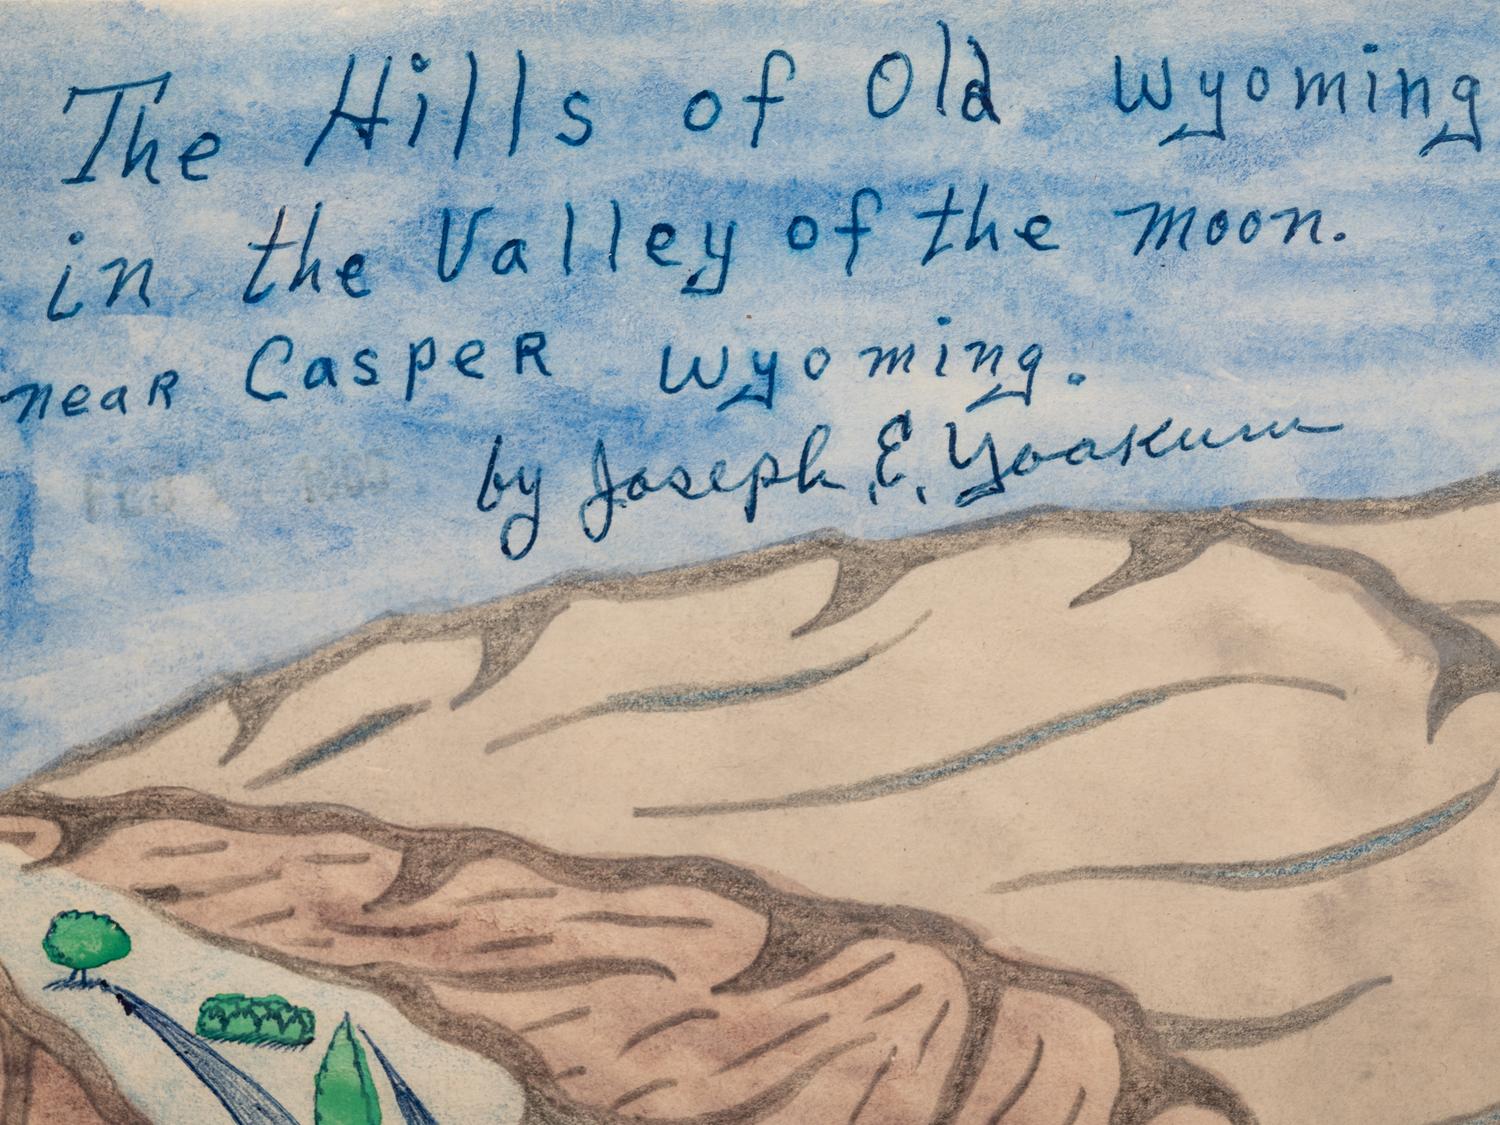 The Hills of Old Wyoming
in the Valley of the moon.
near Casper Wyoming.
by Joseph E. Yoakum